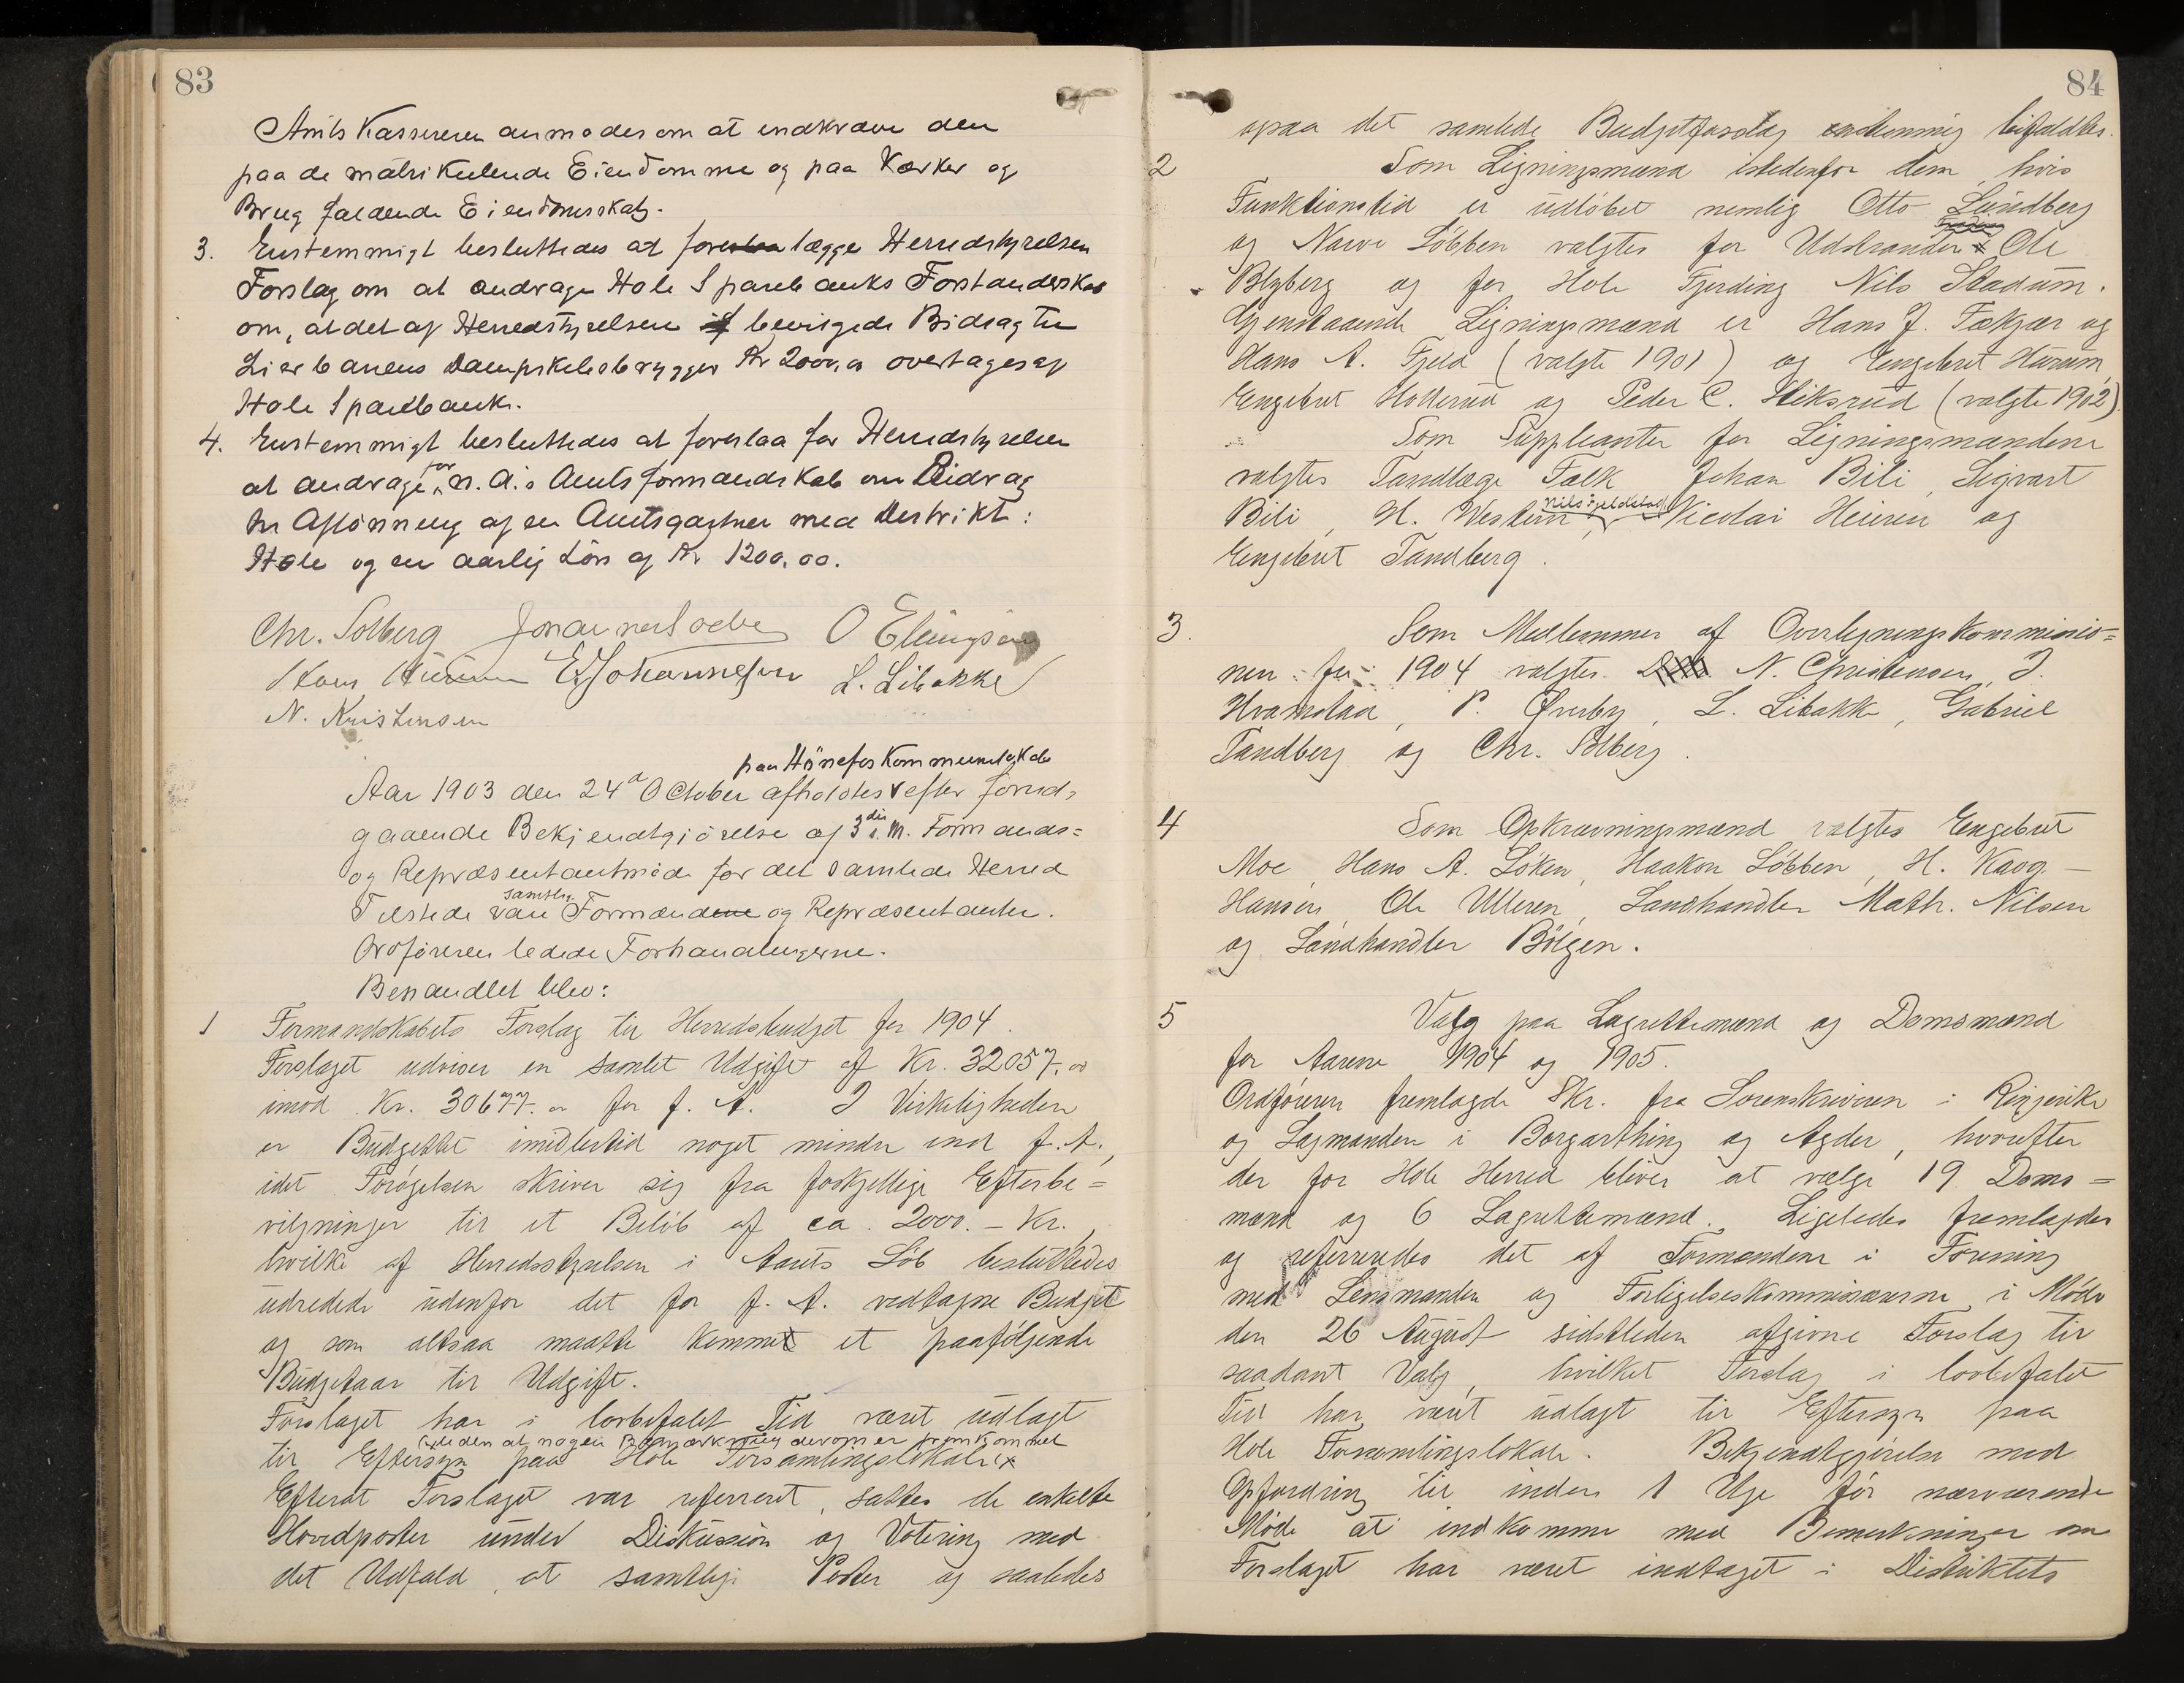 83
Amts Kassereren anmodes om at indkræve den
paa de matrikulende Eiendomme og paa Værker og
Brug faldende Eiendomsskat.
3. Enstemmigt besluttedes at forelægge Herredstyrelsen
Forslag om at andrage Hole Sparebanks Forstanderskab
om, at det af Herredstyrelsen bevilgede Bidrag til
Lierbanens Dampskibsbrygger Kr 2000,00 overtages af
Hole Sparebank.
4. Enstemmigt besluttedes at foreslaa for Herredstyrelsen
at andrage for n. A.s Amtsformandskab om Bidrag
til Aflønning af en Amtsgartner med Distrikt:
Hole og en aarlig Løn af Kr 1200,00.
Chr. Solberg O Elingsen
Hans Hurum E Johannesen L. Libakke
N. Kristensen
paa Hønefos Kommunelokale
Aar 1903 den 24d October afholdtes efter forud-
gaaende Bekjendtgjørelse af 3die d. M. Formands=
og Repræsentantmøde for det samlede Herred
Tilstede vare samtlige Formænd og Repræsentanter.
Ordføreren ledede Forhandlingerne.
Behandlet blev:
1 Formandskabets Forslag til Herredsbudget for 1904.
Forslaget udviser en samlet Udgift af Kr. 32057.00
imod Kr. 30677.00 for f. A. I Virkeligheden
er Budgettet imidlertid noget mindre end f. A.,
idet Forøgelsen skriver sig fra forskjellige Efterbe=
vilgninger til et Beløb af ca. 2000.- Kr.,
hvilke af Herredsstyrelsen i Aarets Løb besluttedes
udredede udenfor det for f. A. vedtagne Budget
og som altsaa maatte komme et paafølgende
Budgetaar til Udgift.
Forslaget har i lovbefalet Tid været udlagt
(x uden at nogen Bemærkning derom er fremkommet
til Eftersyn paa Hole Forsamlingslokale (x
Efterat Forslaget var refereret, sattes de enkelte
Hovedposter under Diskussion og Votering med
det Udfald, at samtlige Poster og saaledes
84
ogsaa det samlede Budgetforslag enstemmig bifaldtes.
2 Som Ligningsmænd istedenfor dem, hvis
Funktionstid er udløbet nemlig Otto Lundberg
og Narve Løbben valgtes for Udstranden Ole
Blyberg og for Hole Fjerding Nils Stadum.
Gjenstaaende Ligningsmænd er Hans J. Fækjær og
Hans A. Fjeld (valgte 1901) og Engebret Hurum,
Engebret Hollerud og Peder C. Viksrud (valgte 1902).
Som Suppleanter for Ligningsmændene
valgtes Tandlæge Falk, Johan Bili, Sigvart
Bili, H. Western, Nils Gjeldstad, Nicolai Heieren og
Engebret Tandberg.
3. Som Medlemmer af Overligningskommissio=
nen for 1904 valgtes N. Christensen, J.
Hvamstad, P. Øverby, L. Libakke, Gabriel
Tandberg og Chr. Solberg.
4 Som Opkrævningsmænd valgtes Engebret
Moe, Hans A. Løken, Haakon Løbben, H. Kaog-
Hansen, Ole Ulleren, Landhandler Math. Nilsen
og Landhandler Bølgen.
5 Valg paa Lagrettemænd og Domsmænd
for Aarene 1904 og 1905.
Ordføreren fremlagde Skr. fra Sorenskriveren i Ringerike
og Lagmanden i Borgarthing og Agder, hvorefter
der for Hole Herred bliver at vælge 19 Doms=
mænd og 6 Lagrettemænd. Ligeledes fremlagdes
og refereredes det af Formændene i Forening
med Lensmanden og Forligelseskommissærerne i Møde
den 26 August sidstleden afgivne Forslag til
saadant Valg, hvilket Forslag i lovbefalet
Tid har været udlagt til Eftersyn paa
Hole Forsamlingslokale. Bekjendtgjørelse med
Opfordring til inden 1 Uge før nærværende
Møde at indkomme med Bemerkninger om
Forslaget har været indtaget i Distriktets